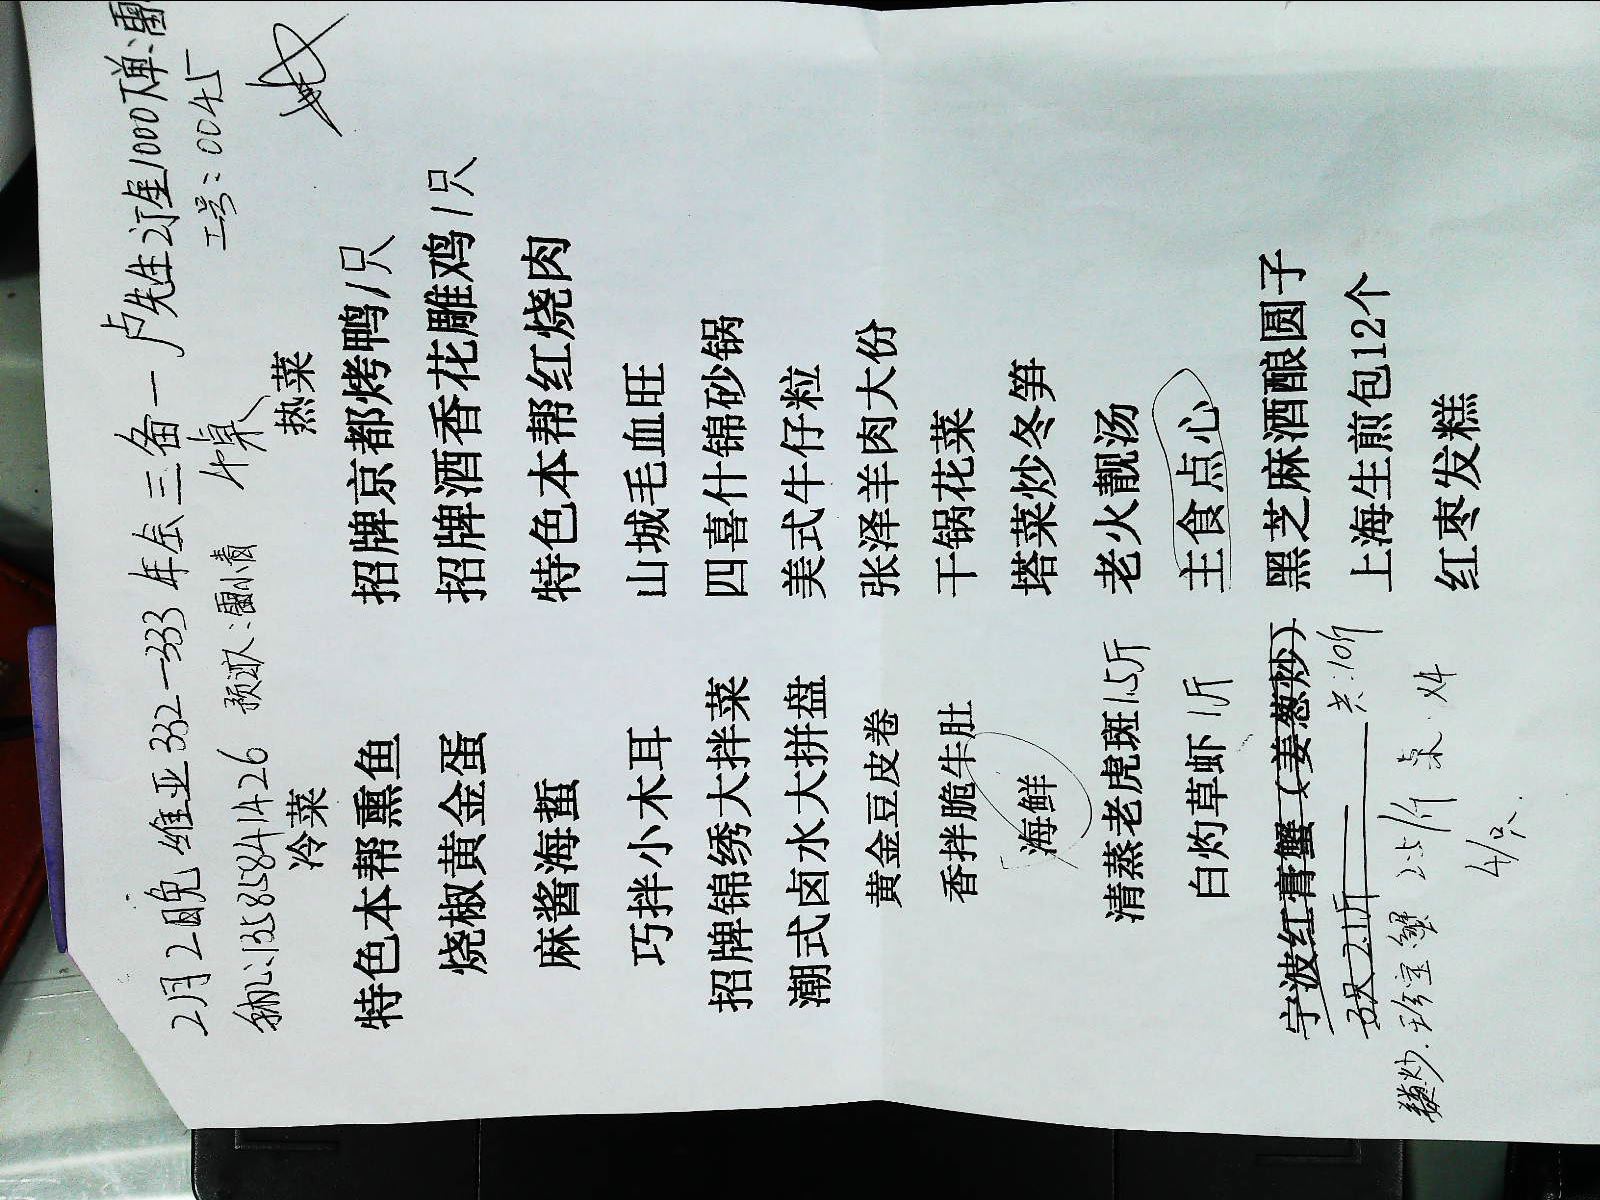 2月2日晚 维亚332-333 年会三备一 卢先生订金1000下单:雷
手机:13585841426 预订人:雷小青 4桌 工号:0045
冷菜
特色本帮熏鱼
烧椒黄金蛋
麻酱海蜇
巧拌小木耳
招牌锦绣大拌菜
潮式卤水大拼盘
黄金豆皮卷
香拌脆牛肚
海鲜
清蒸老虎斑1.5斤
白灼草虾1斤
宁波红膏蟹(姜葱炒)
2.5斤 共:10斤
珍宝蟹 2.5斤/桌 ×4
4只
热菜
招牌京都烤鸭1只
招牌酒香花雕鸡1只
特色本帮红烧肉
山城毛血旺
四喜什锦砂锅
美式牛仔粒
张泽羊肉大份
干锅花菜
塔菜炒冬笋
老火靓汤
主食点心
黑芝麻酒酿圆子
上海生煎包12个
红枣发糕